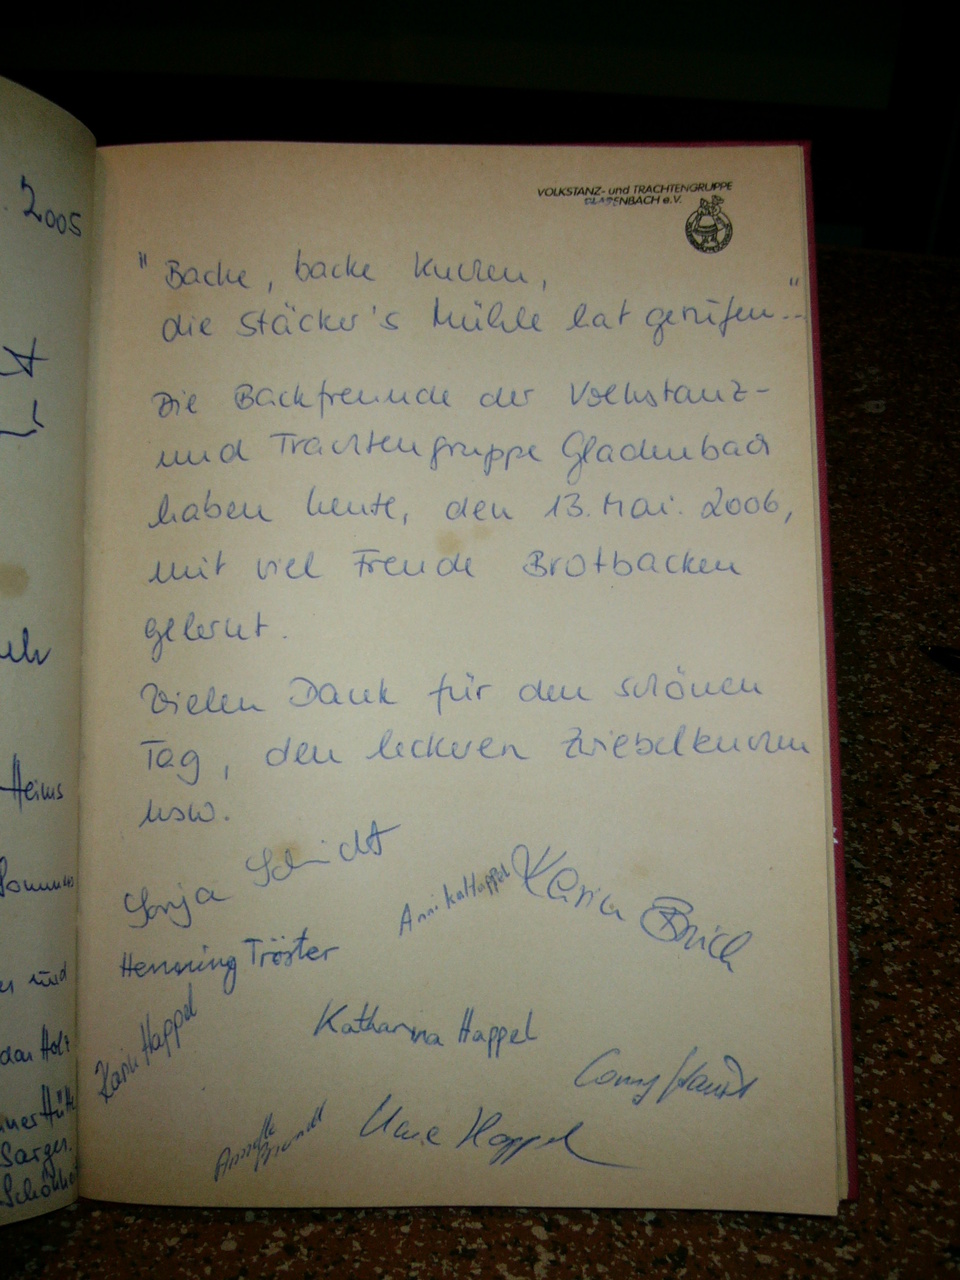 2005
VOLKSTANZ- und TRACHTENGRUPPE
GLADENBACH e.V.
"Backe, backe Kuchen,
die Stäcker's Mühle hat gerufen..."
Die Backfreunde der Volkstanz-
und Trachtengruppe Gladenbach
haben heute, den 13. Mai. 2006,
mit viel Freude Brotbacken
gelernt.
Vielen Dank für den schönen
Tag, den leckeren Zwiebelkuchen
usw.
Sonja Schmidt
Annika Happel
Karin Bruch
Henning Tröster
Karin Happel
Katharina Happel
Conny
Uwe Happel
Annette
Heims
und